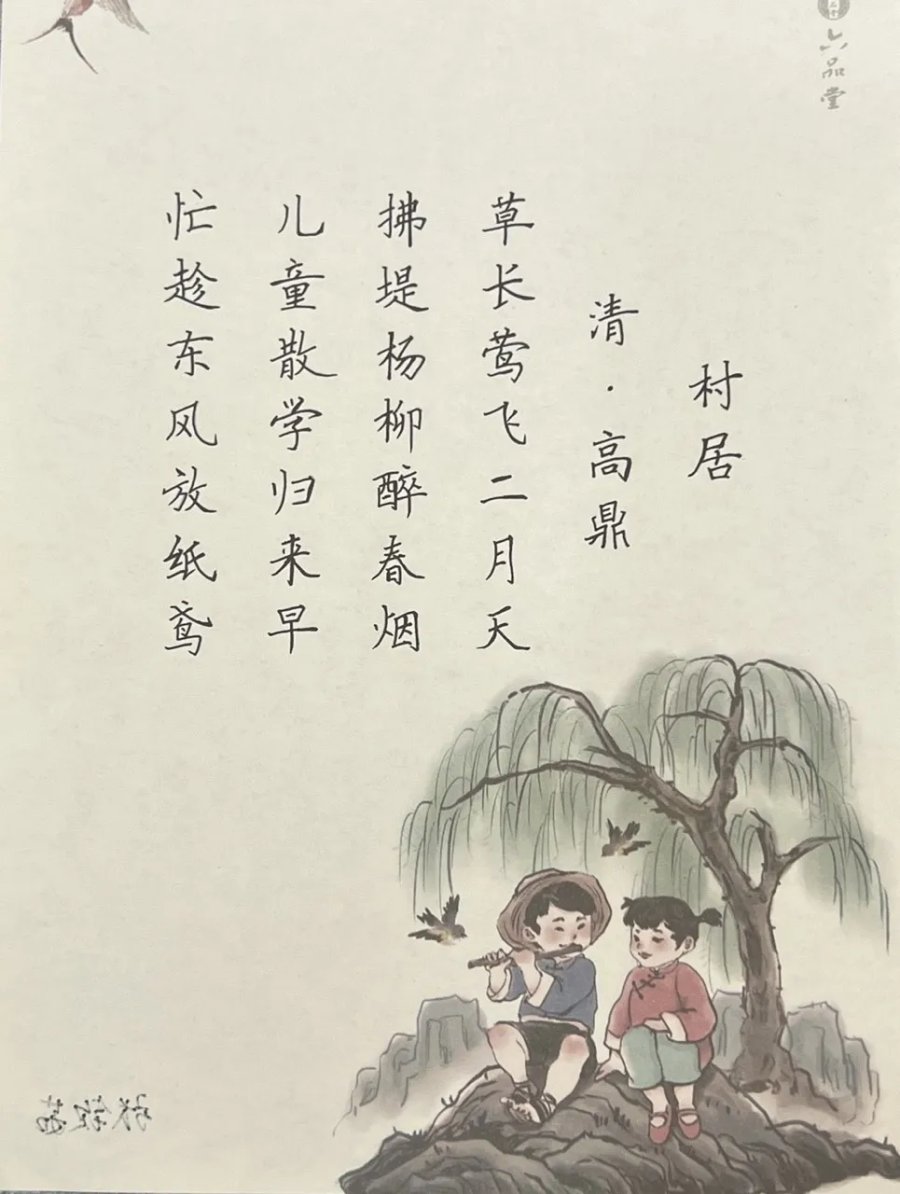 六品堂
村居
清·高鼎
草长莺飞二月天
拂堤杨柳醉春烟
儿童散学归来早
忙趁东风放纸鸢